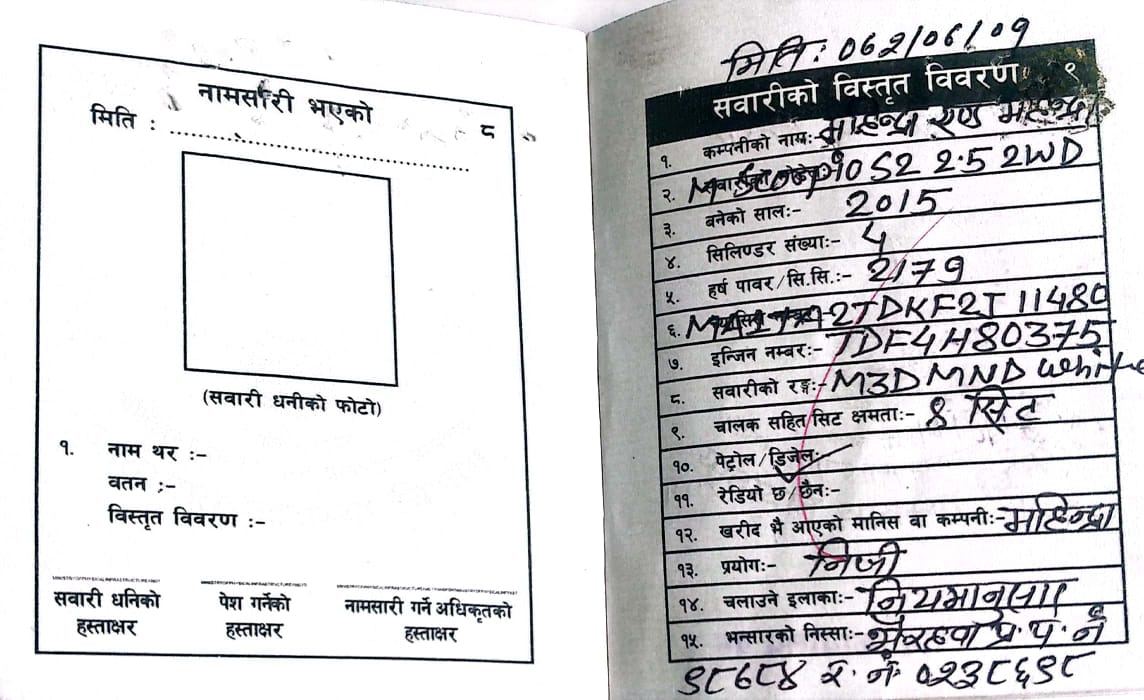 नामसारी भएको
८
मिति : ........................
(सवारी धनीको फोटो)
१. नाम थर :-
वतन :-
विस्तृत विवरण :-
सवारी धनिको
हस्ताक्षर
पेश गर्नेको
हस्ताक्षर
नामसारी गर्ने अधिकृतको
हस्ताक्षर
मिति: 062/06/09
सवारीको विस्तृत विवरण ९
१. कम्पनीको नाम:- महिन्द्रा एण्ड महिन्द्रा
२. S2 2.5 2WD
३. बनेको साल:- 2015
४. सिलिण्डर संख्या:- 4
५. हर्ष पावर/सि.सि.:- 2179
६. 2TDKF2J11480
७. इन्जिन नम्बर:- TDF4H80375
८. सवारीको रङ्ग:- M3DMND White
९. चालक सहित सिट क्षमता:- 8 सिट
१०. पेट्रोल/डिजेल:-
११. रेडियो छ/छैन:-
१२. खरीद भै आएको मानिस वा कम्पनी:- महिन्द्रा
१३. प्रयोग:- निजी
१४. चलाउने इलाका:- नियमानुसार
१५. भन्सारको निस्सा:- भैरहवा प्र.प.नं
९८६८४ र.नं. ०२३८६९८